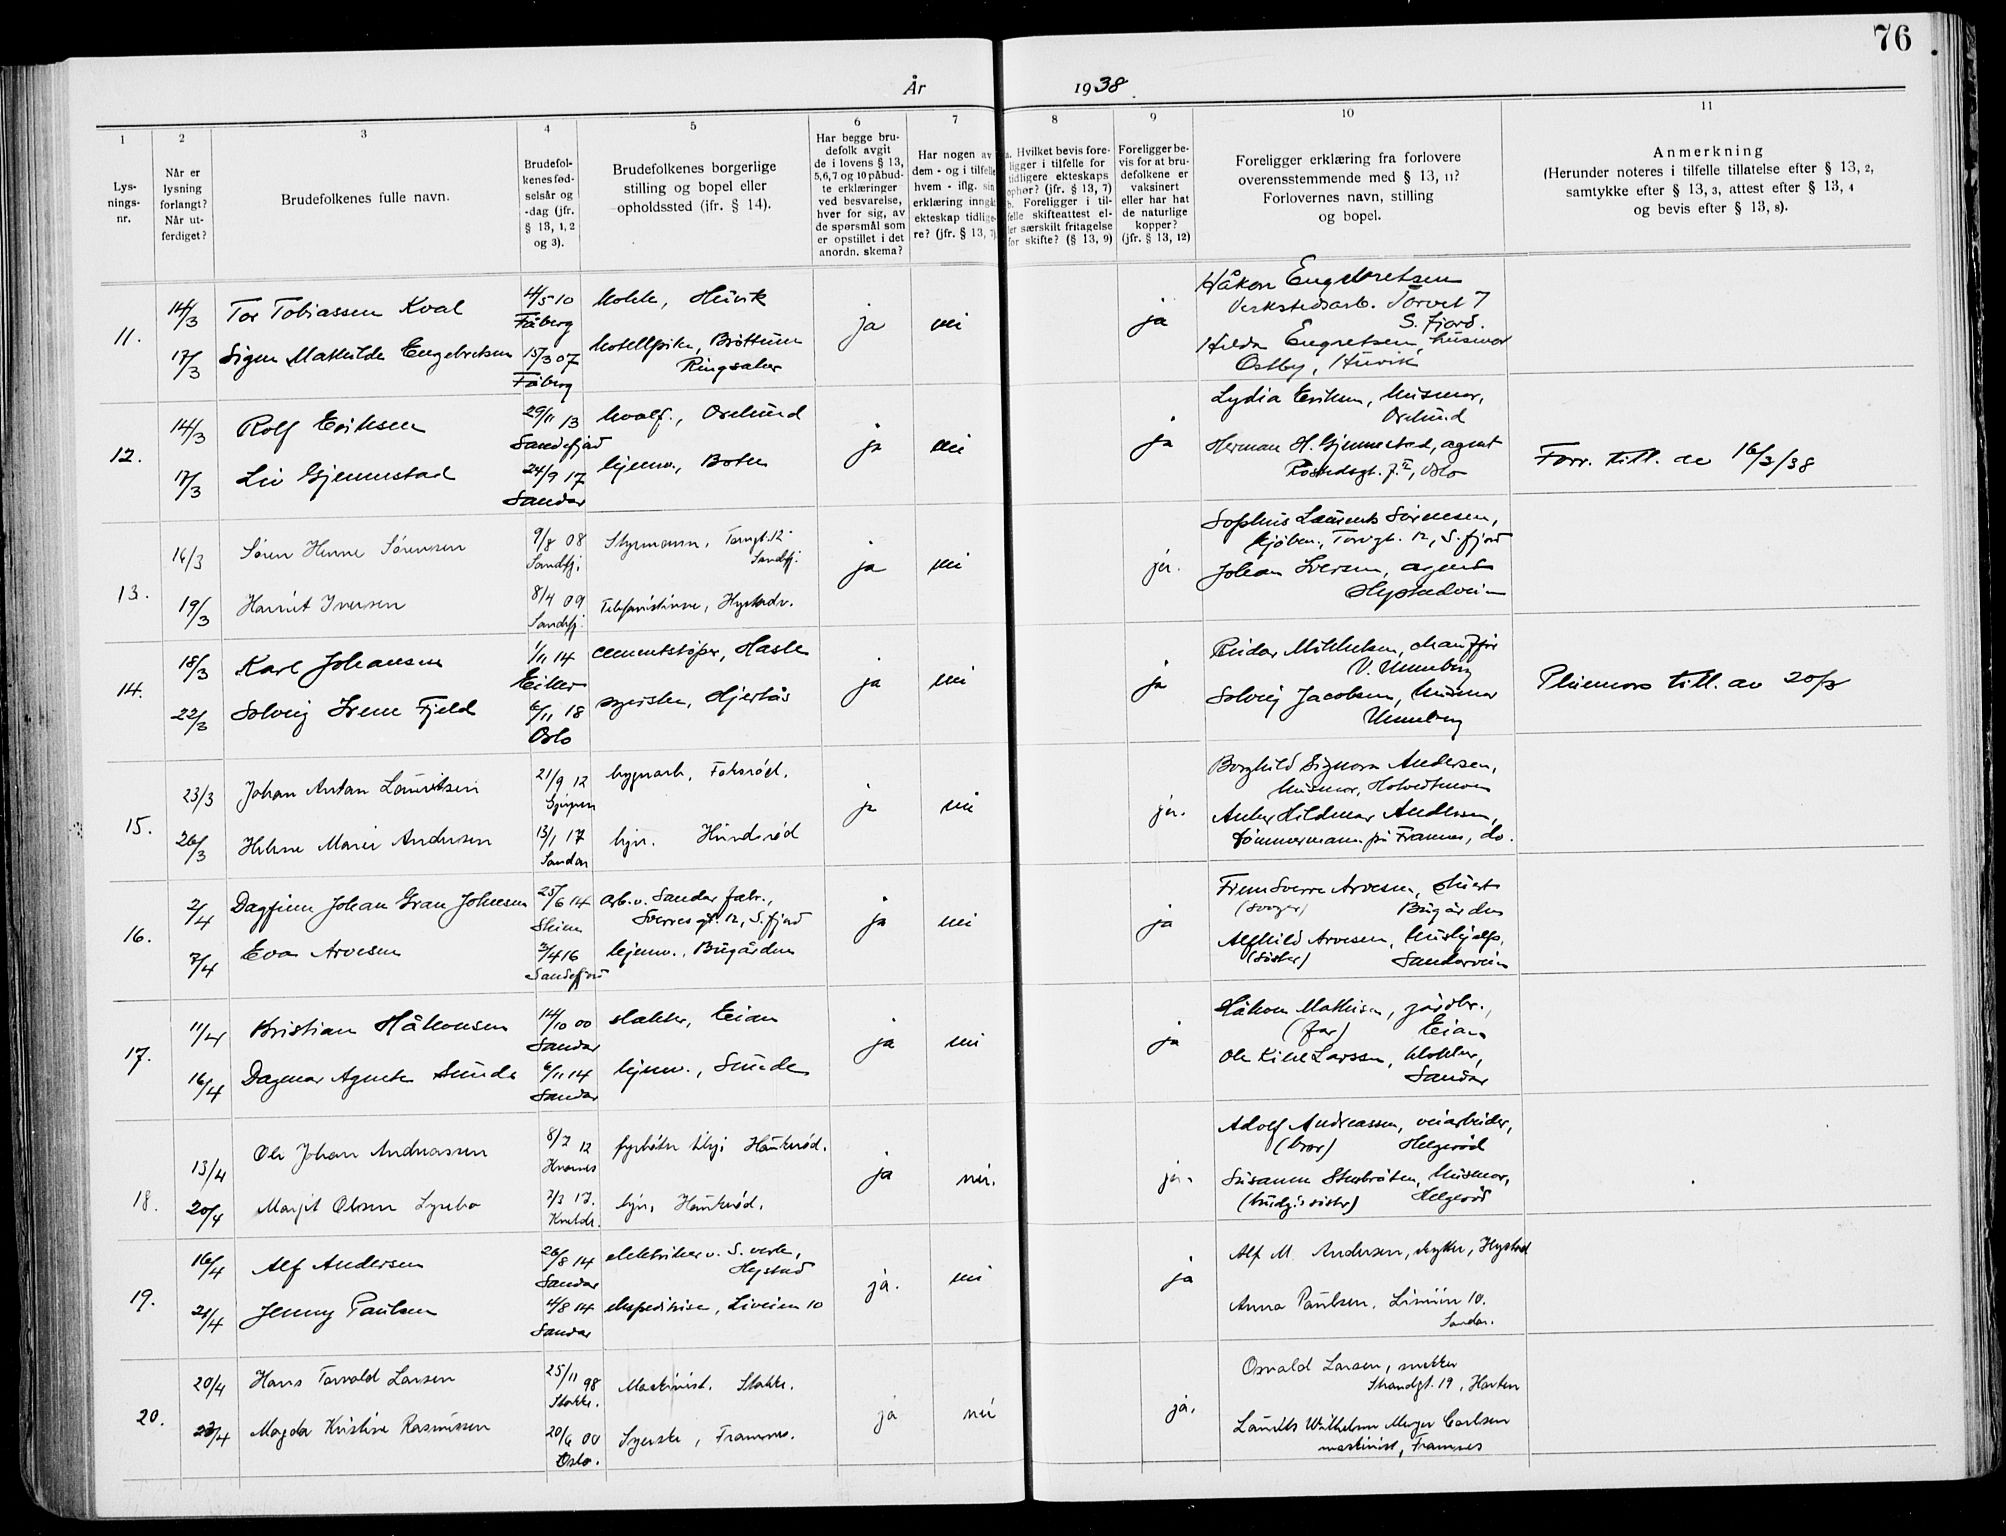 76
År 1938.
1 2 3 4 5 6 7 8 9 10 11
Lys-
nings-
nr.
Når er
lysning
forlangt?
Når ut-
ferdiget?
Brudefolkenes fulle navn.
Brudefol-
kenes fød-
selsår og
-dag (jfr.
§ 13, 1, 2
og 3).
Brudefolkenes borgerlige
stilling og bopel eller
opholdssted (jfr. § 14).
Har begge bru-
defolk avgit
de i lovens § 13,
5,6,7 og 10 påbud-
te erklæringer
ved besvarelse,
hver for sig, av
de spørsmål som
er opstillet i det
anordn. skema?
Har nogen av
dem - og i tilfelle
hvem - iflg. sin
erklæring inngåt
ekteskap tidlige-
re? (jfr. § 13, 7)
a. Hvilket bevis fore-
ligger i tilfelle for
tidligere ekteskaps
ophør? (jfr. § 13, 7)
b. Foreligger i til-
felle skifteattest el-
ler særskilt fritagelse
for skifte? (§ 13, 9)
Foreligger be-
vis for at bru-
defolkene er
vaksinert
eller har hat
de naturlige
kopper?
(jfr. § 13, 12)
Foreligger erklæring fra forlovere
overensstemmende med § 13, 11?
Forlovernes navn, stilling
og bopel.
Anmerkning
(Herunder noteres i tilfelle tillatelse efter § 13, 2,
samtykke efter § 13, 3, attest efter § 13, 4
og bevis efter § 13, 8).
11.
14/3 Tor Tobiassen Kval 4/5 10 Fåberg
17/3 Signe Mathilde Engebretsen 15/3 07 Fåberg
kokk, Huvik
hotellpike, Brøttum
Ringsaker
ja nei ja
Håkon Engebretsen
Verkstedsarb. Torvet 7
S. fjord.
Hilda Engretsen, husmor
Østby, Huvik
12.
14/3 Rolf Eriksen 29/11 13 Sandefjord
17/3 Liv Gjennestad 24/9 17 Sandar
hvalf., Orelund
hjemv.,
ja nei ja
Lydia Eriksen, husmor,
Orelund
Herman H. Gjennestad, agent
Oslo
Forr. till. av 16/3/38
13.
16/3 Søren Herne Sørensen 9/8 08 Sandfj.
19/3 Harriet Iversen 8/4 09 Sandefj.
Styrmann, Torvgt. 12
Sandfj.
Telefonistinne, Hystadv.
ja nei ja.
Sophus Laurents Sørensen,
kjøbm., Torvgt. 12, S. fjord
Johan Iversen, agent
Hystadveien
14.
18/3 Karl Johansen 1/11 14 Eiker
22/3 Solveig Irene Fjeld 6/11 18 Oslo
cementstøper, Hasle
syerske, Hjertås
ja nei ja
Reidar Mikkelsen, chauffør
V. Unneberg
Solveig Jacobsen, husmor
Unneberg
till. av 20/3
15.
23/3 Johan Anton Lauritsen 21/9 12 Gjerpen
26/3 Helene Marie Andersen 13/1 17 Sandar
bygnarb., Fokserød.
hjv. Hundsrød
ja nei ja.
Borghild Signora Andersen,
husmor,
Anker Hildmar Andersen,
tømmermann på Framnes, do.
16.
2/4 Dagfinn Johan Gran Johnsen 25/6 14 Skien
7/4 Eva Arvesen 3/4 16 Sandefjord
arb. v. Sandar fabr.,
Sverres gt. 12, S. fjord
hjemv., Bugården
ja nei ja
Finn Sverre Arvesen, stuert
(svoger) Bugården
Alfhild Arvesen, hushjelp,
(søster) Sandarveien
17.
11/4 Kristian Håkonsen 14/10 00 Sandar
16/4 Dagmar Agnete Sunde 6/11 14 Sandar
slakter, Eian
hjemv., Sunde
ja nei ja
Håkon Mathisen, gårdbr.,
(far) Eian
Ole Kihl Larssen, klokker,
Sandar
18.
13/4 Ole Johan Andreassen 8/7 12
20/4 Margit Olsen Lysebo 7/3 17. Kvelde.
fyrbøter Haukerød.
hjv, Haukerød.
ja nei. ja.
Adolf Andreassen, veiarbeider,
(bror) Helgerød
Susanne Stubråten, husmor,
(brudg.s søster) Helgerød
19.
16/4 Alf Andersen 26/8 14 Sandar
21/4 Jenny Paulsen 4/8 14 Sandar
elektriker v. S. verk,
Hystad
ekspeditrise, Liveien 10
ja. nei ja
Alf M. Andersen, skytter, Hystad
Anna Paulsen, Liveien 10.
Sandar.
20.
20/4 Hans Torvald Larsen 25/11 98 Stokke.
23/4 Magda Kristine Rasmussen 20/6 00 Oslo.
Maskinist. Stokke.
Syerske, Framnes.
ja nei ja.
Osvald Larsen, snekker
Strandgt. 19, Horten
Laurits Wilhelm Meyer Carlsen
maskinist, Framnes